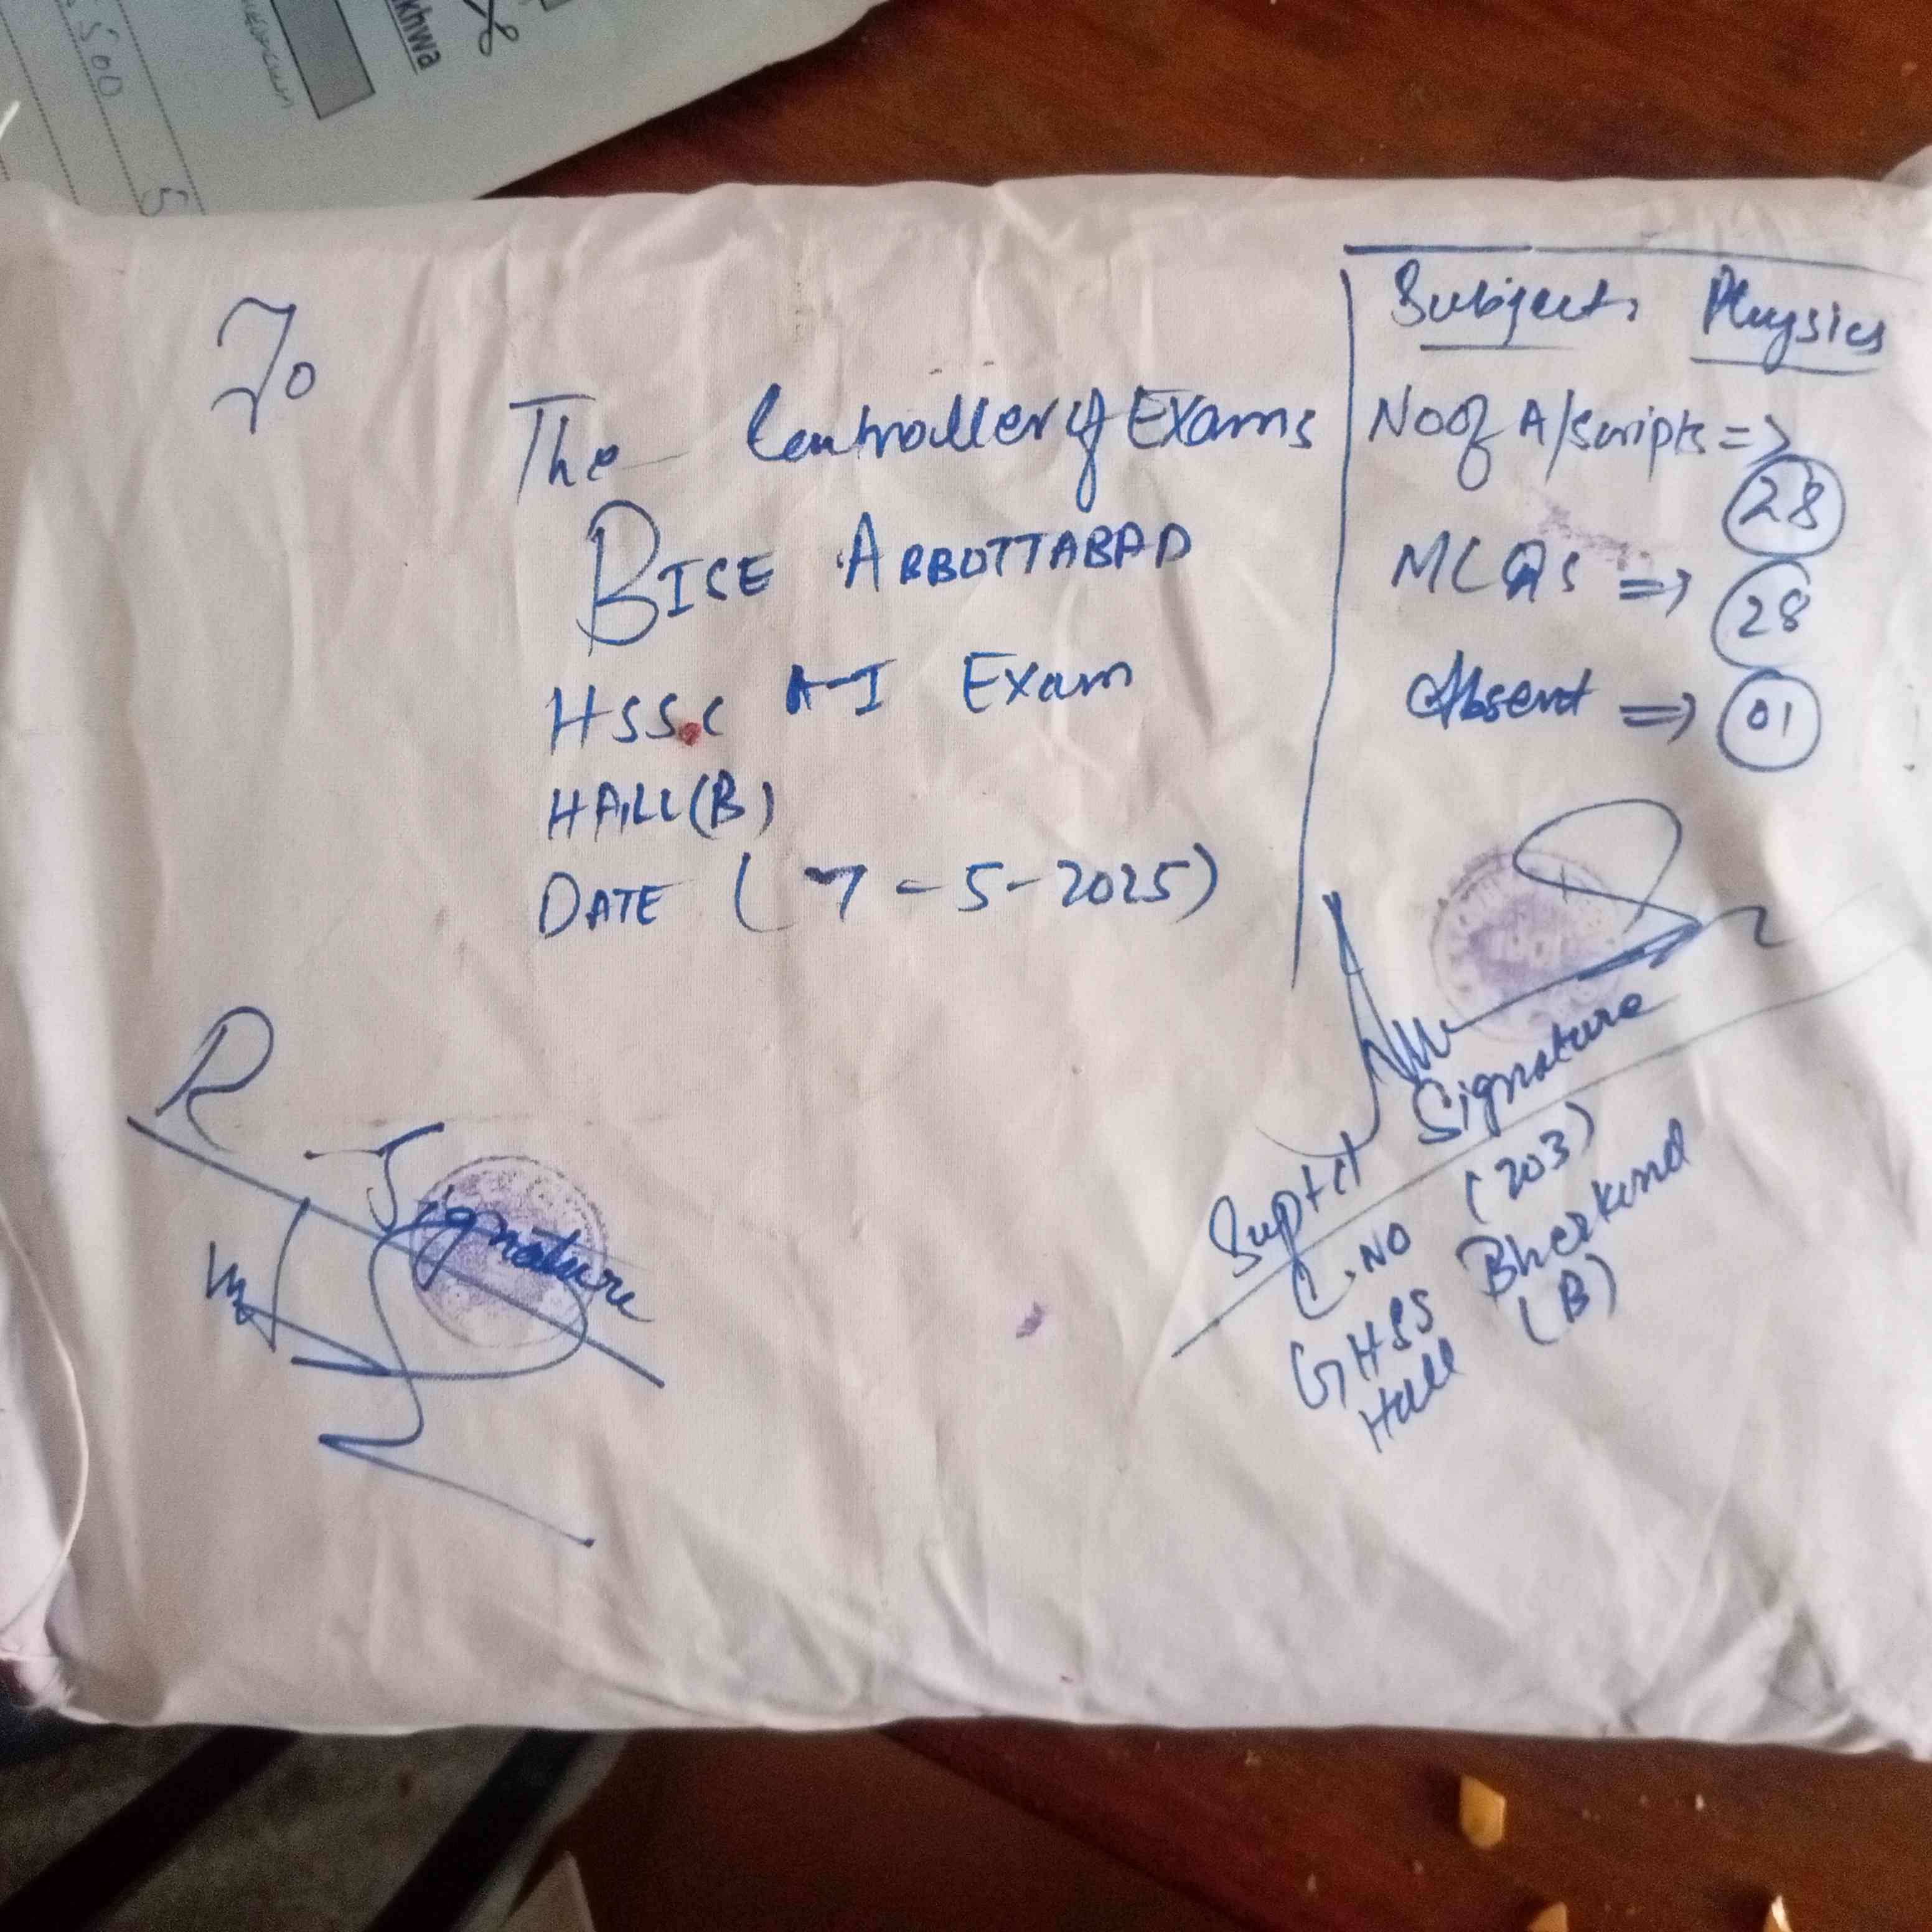 khwa
500
5
To
The Controller of Exams
BISE ABBOTTABAD
HSSC A-I Exam
HALL (B)
DATE ( 7 - 5 - 2025 )
Subject: Physics
No of A/Scripts =>
28
MCQs => 28
Absent => 01
R.I Signature
Suptdt Signature
C.NO (203)
GHSS Bherkund
Hall (B)